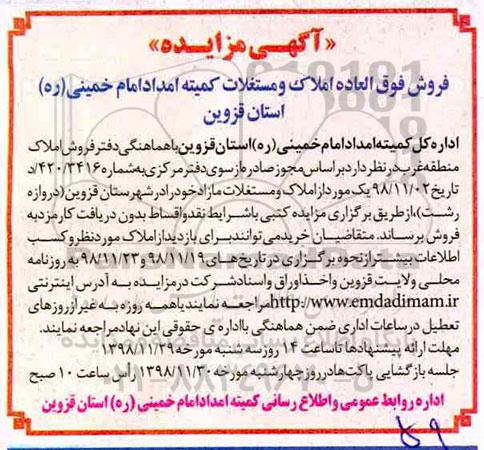 «آگهی مزایده»
فروش فوق العاده املاک و مستغلات کمیته امداد امام خمینی (ره)
استان قزوین
اداره کل کمیته امداد امام خمینی (ره) استان قزوین با هماهنگی دفتر فروش املاک
منطقه غرب در نظر دارد بر اساس مجوز صادره از سوی دفتر مرکزی به شماره ۴۲۰/۳۴۱۶/د
تاریخ ۹۸/۱۱/۰۲ یک مورد از املاک و مستغلات مازاد خود را در شهرستان قزوین (دروازه
رشت)، از طریق برگزاری مزایده کتبی با شرایط نقد و اقساط بدون دریافت کارمزد به
فروش برساند. متقاضیان خرید می توانند برای بازدید از املاک مورد نظر و کسب
اطلاعات بیشتر از نحوه برگزاری در تاریخ های ۹۸/۱۱/۱۹ و ۹۸/۱۱/۲۳ به روزنامه
محلی ولایت قزوین و اخذ اوراق و اسناد شرکت در مزایده به آدرس اینترنتی
http://www.emdadimam.ir مراجعه نمایند یا همه روزه به غیر از روزهای
تعطیل در ساعات اداری ضمن هماهنگی با اداره ی حقوقی این نهاد مراجعه نمایند.
مهلت ارائه پیشنهادها تا ساعت ۱۴ روز سه شنبه مورخه ۱۳۹۸/۱۱/۲۹
جلسه بازگشایی پاکت ها در روز چهارشنبه مورخه ۱۳۹۸/۱۱/۳۰ رأس ساعت ۱۰ صبح
اداره روابط عمومی و اطلاع رسانی کمیته امداد امام خمینی (ره) استان قزوین